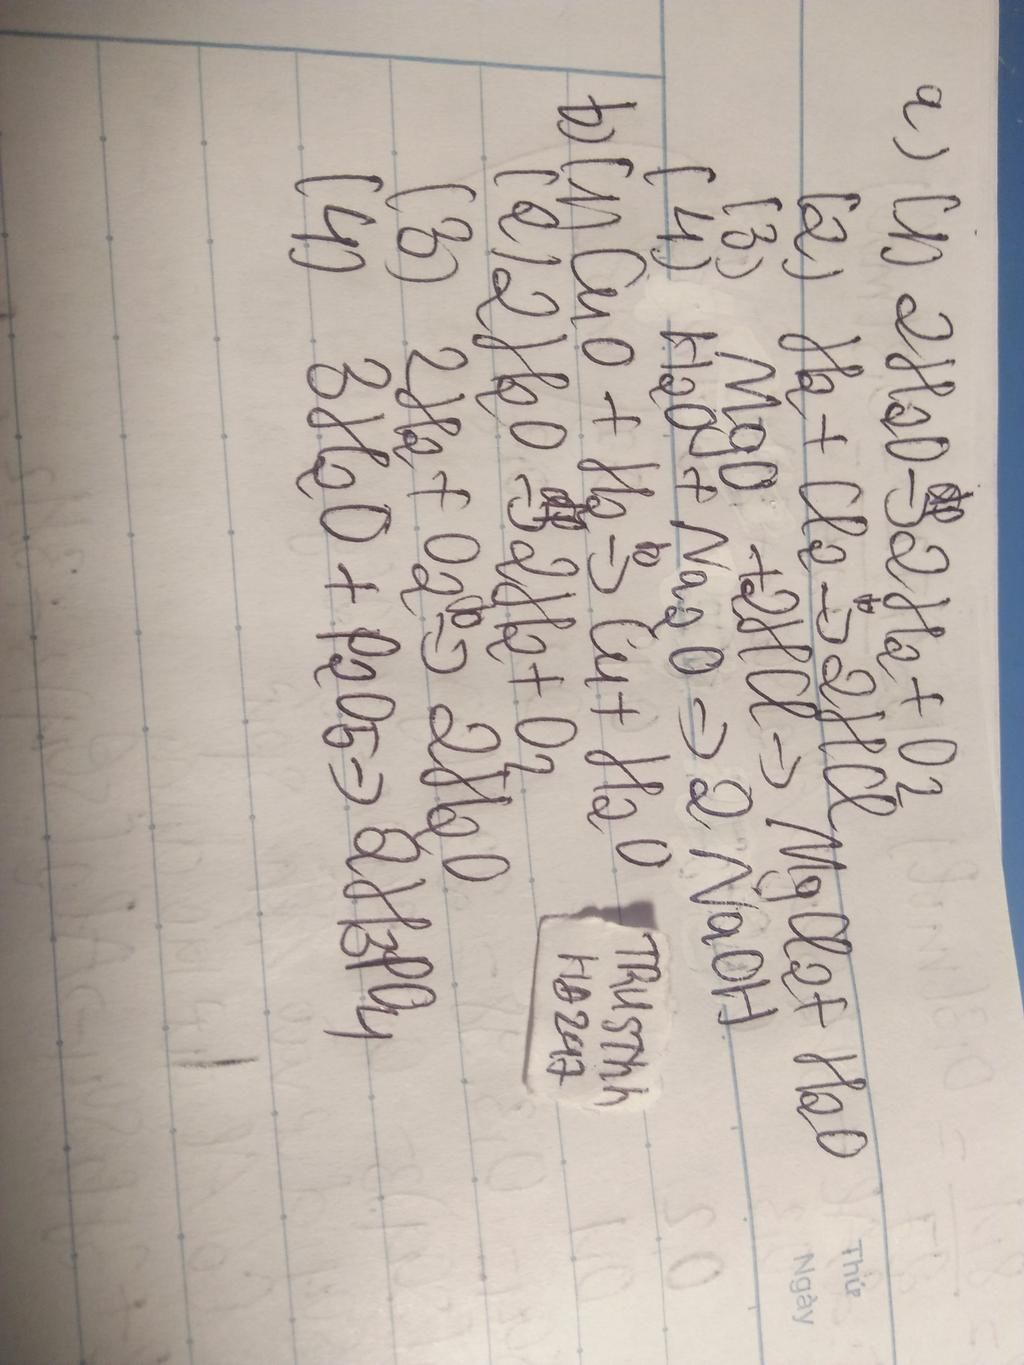 a) (1) 2H2O → 2H2 + O2
(2) H2 + Cl2 → 2HCl
(3) MgO + 2HCl → MgCl2 + H2O
(4) H2O + Na2O → 2 NaOH
b) (1) CuO + H2 → Cu + H2O
(2) 2H2O → 2H2 + O2
(3) 2H2 + O2 → 2H2O
(4) 3H2O + P2O5 → 2H3PO4
HD247
Thứ
Ngày